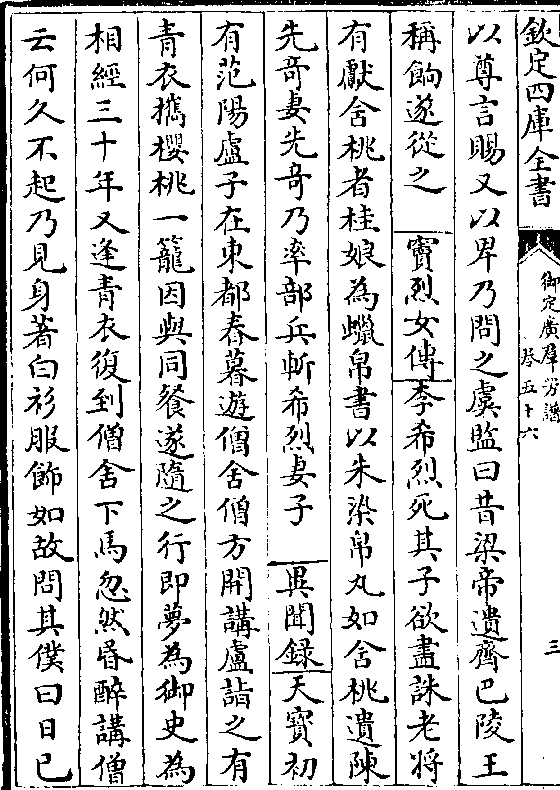 欽定四庫全書
御定廣群芳譜
卷五十六
三
以尊言賜又以卑乃問之虞監曰昔梁帝遺齊巴陵王
稱餉遂從之 竇烈女傳 李希烈死其子欲盡誅老将
有獻含桃者桂娘為蠟帛書以朱染帛丸如含桃遺陳
先竒妻先竒乃率部兵斬希烈妻子 異聞錄 天寳初
有范陽盧子在東都春暮遊僧舍僧方開講盧詣之有
青衣攜櫻桃一籠因與同餐遂隨之行即夢為御史為
相經三十年又逢青衣復到僧舍下馬忽然昏醉講僧
云何久不起乃見身著白衫服飾如故問其僕曰日已